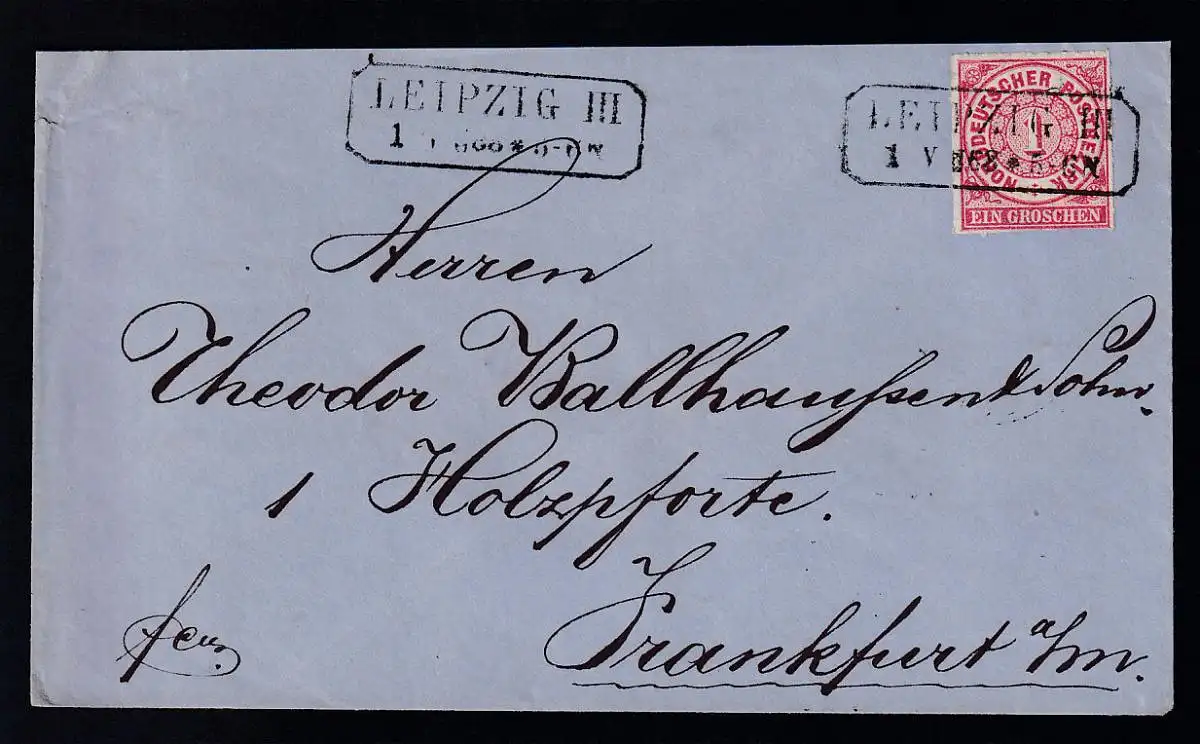 LEIPZIG III
1 V 868 * 5-6 N
LEIPZIG III
1 V 868 * 5-6 N
NORDDEUTSCHER POSTBEZIRK
1
EIN GROSCHEN
Herren
Theodor Wallhaußen & Sohn.
1 Holzpforte.
Frankfurt a/m.